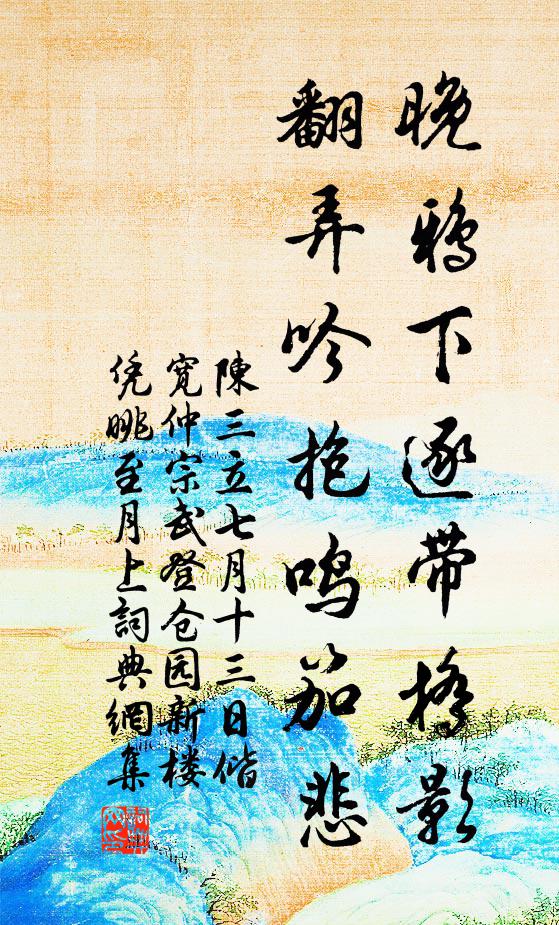 晚鸦下逐带桥影
翻弄吟抱鸣笳悲
陳三立七月十三日偕
寬仲宗武登仓园新楼
凭眺至月上詞典網集